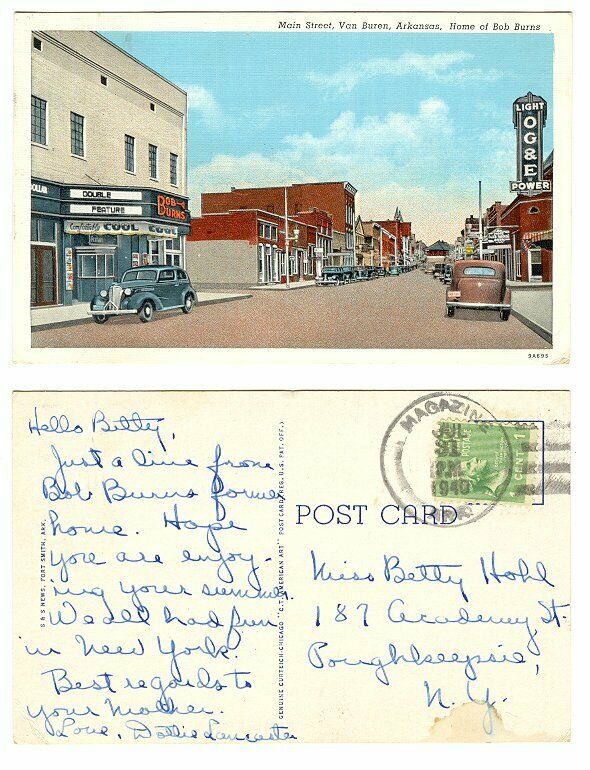 Main Street, Van Buren, Arkansas, Home of Bob Burns
LIGHT
OG&E
POWER
DOLLAR
DOUBLE
FEATURE
BOB
BURNS
Comfortably COOL COOL
9A695
Hello Betty,
Just a line from
Bob Burns former
home. Hope
you are enjoy-
ing your summer.
We all had fun
in New York.
Best regards to
your Mother.
Love, Dottie Lancaster
S & S NEWS, FORT SMITH, ARK.
GENUINE CURTEICH-CHICAGO "C.T. AMERICAN ART" POST CARD (REG. U.S. PAT. OFF.)
MAGAZINE
JUL
31
P.M.
1949
ARK.
POSTAGE
1 CENT 1
POST CARD
Miss Betty Hohl
187 Academy St.
Poughkeepsie,
N. Y.